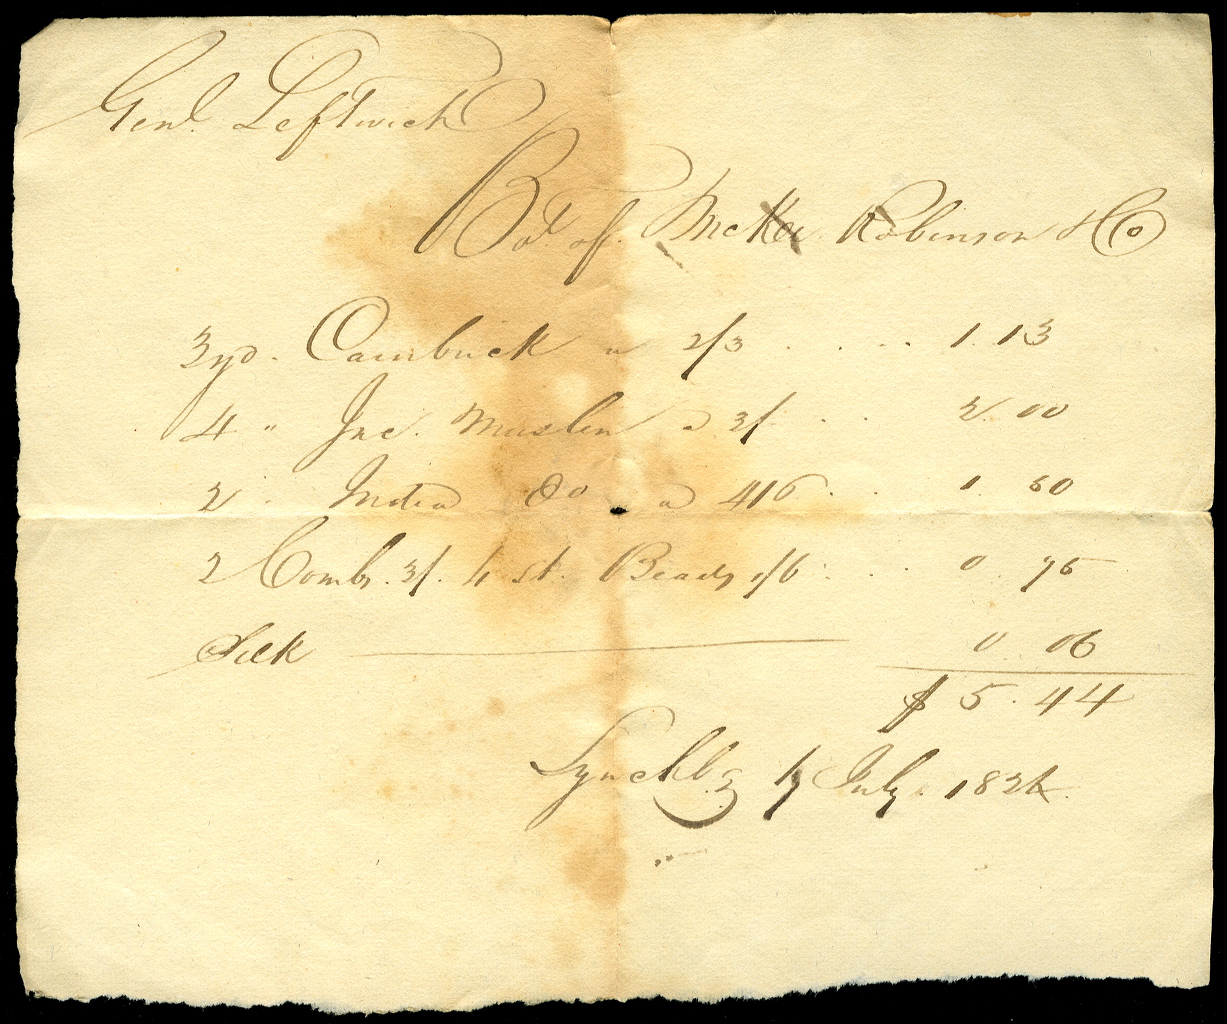 Genl. Leftwich
Bot. of. McKee. Robinson & Co
3 yd. Cambrick a 2/3 . . . . 1. 13
4 " Jac. Muslin a 3/ . . . 2. 00
2 " India Do a 4/6 . . . 1. 50
2 Combs. 3/. 4 st. Beads 1/6 . . . 0. 75
Silk 0. 06
$ 5. 44
Lynchbg July. 1824